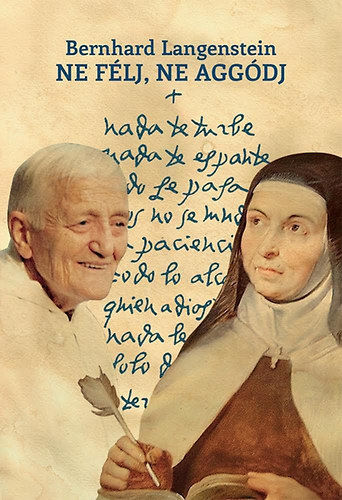 Bernhard Langenstein
NE FÉLJ, NE AGGÓDJ
nada te turbe
nada te espante
do se pasa
no se mud
pacienci
todo lo alc
quien a dios
nada le
solo d